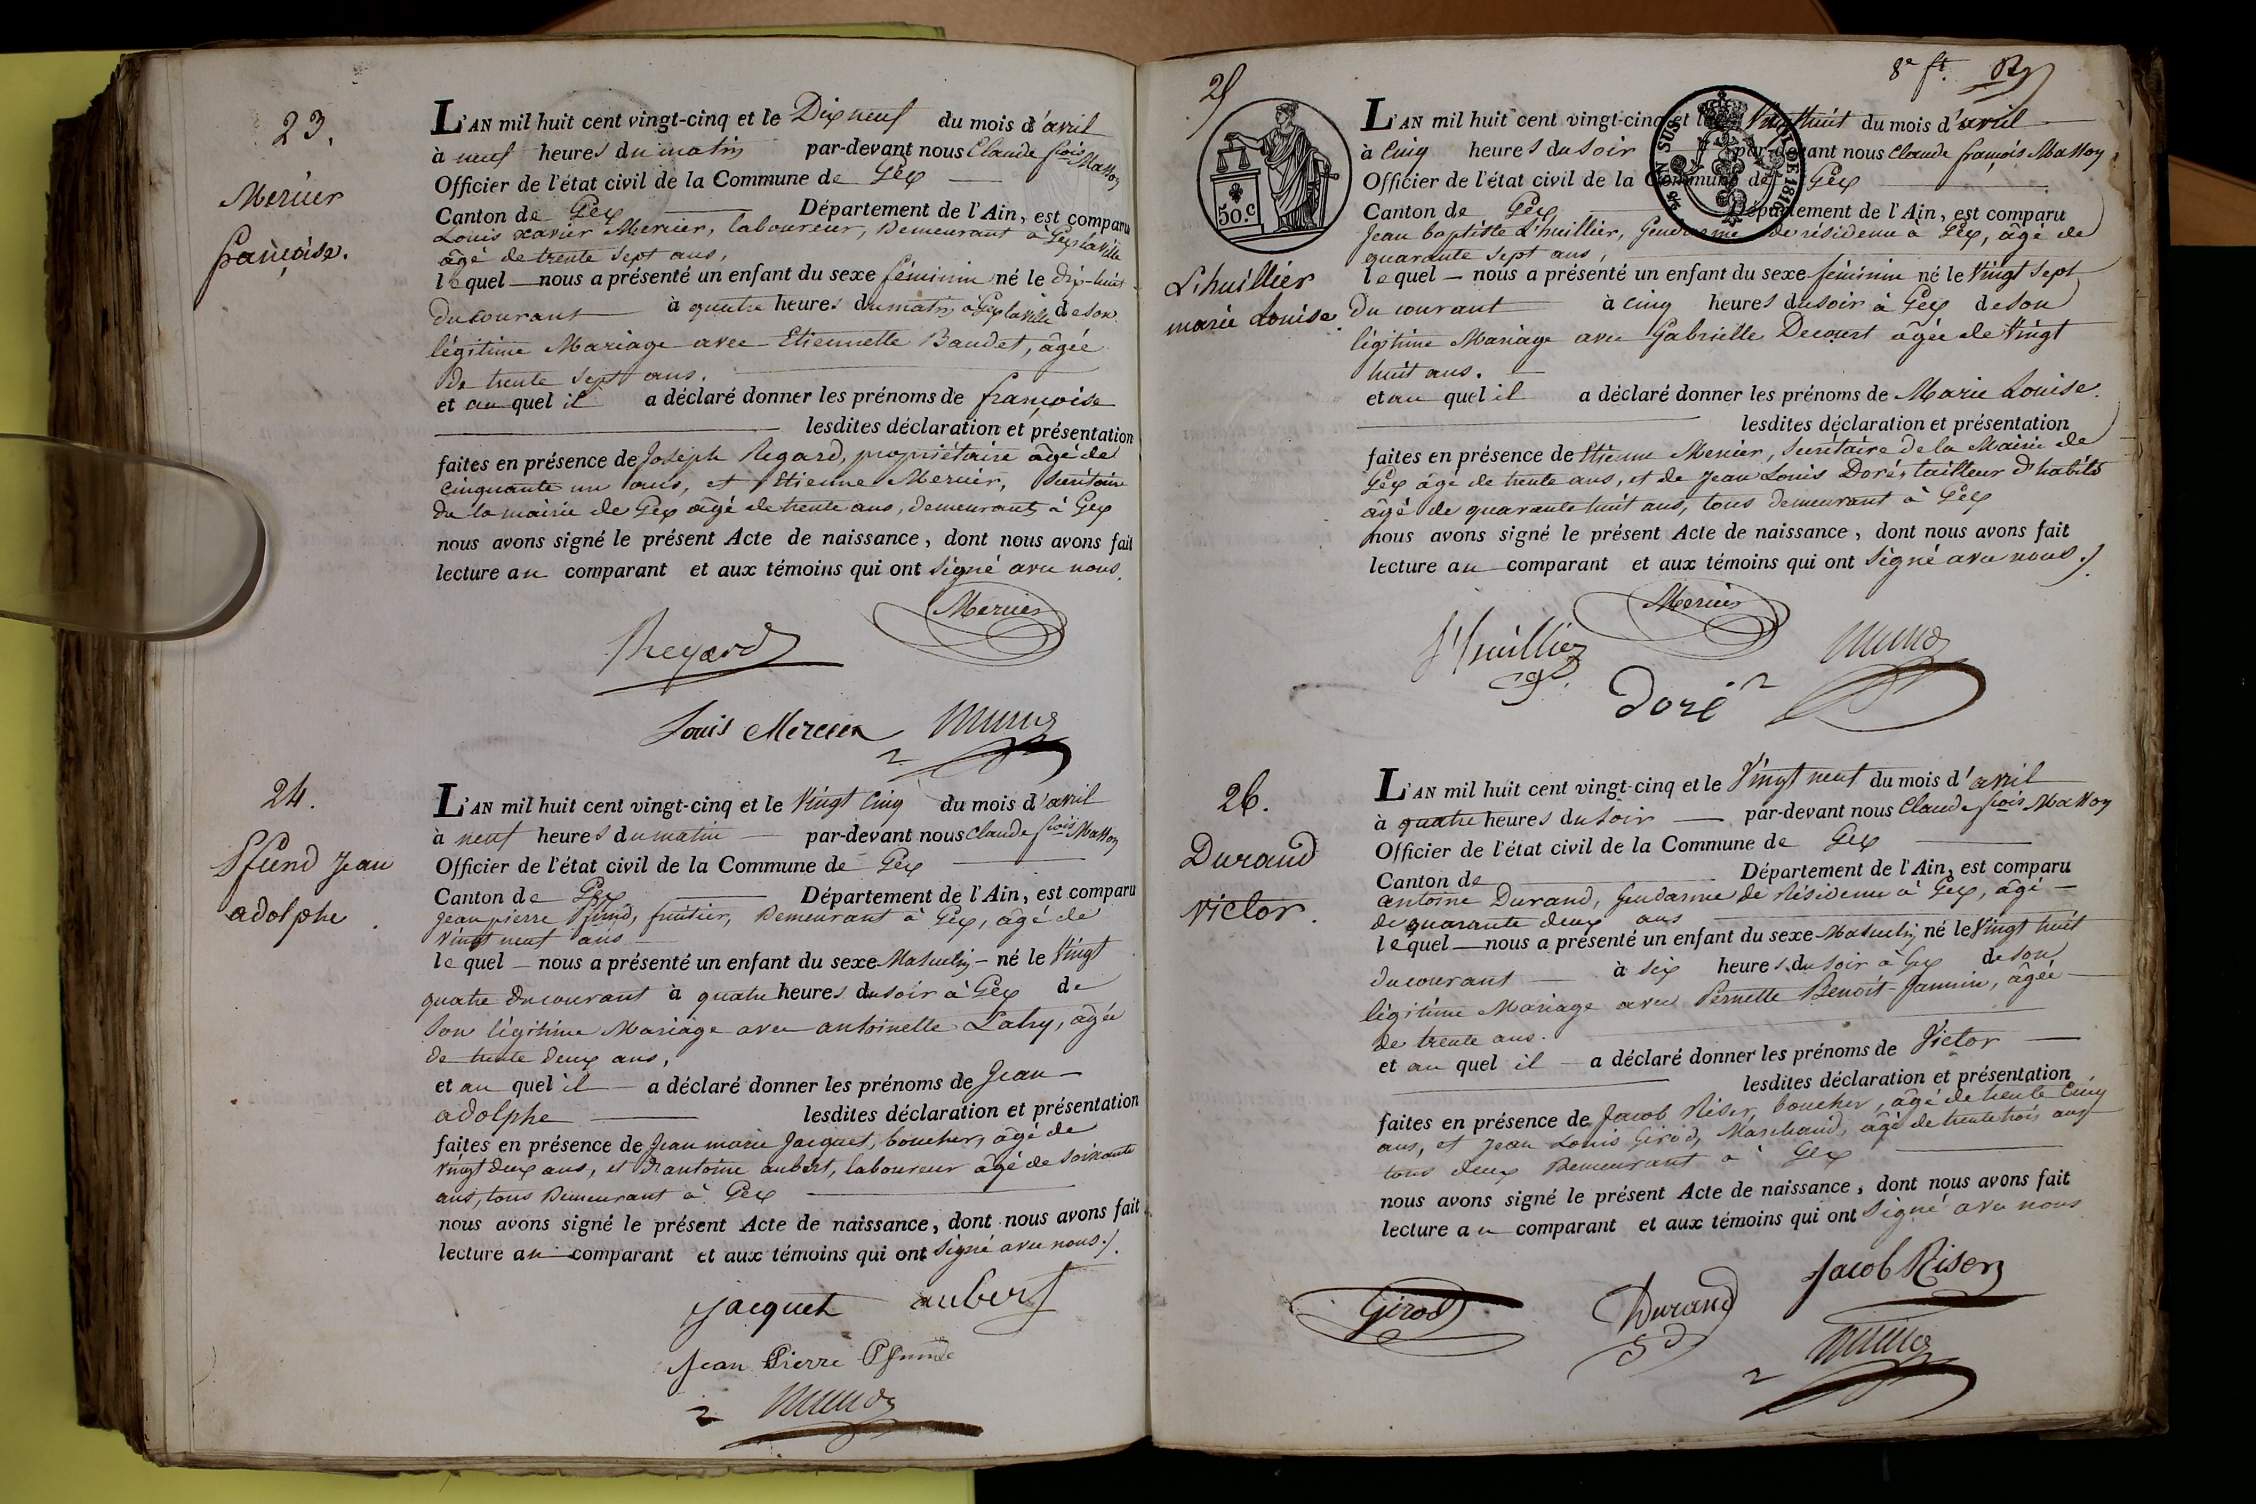 23.
Mercier
françoise.
L'AN mil huit cent vingt-cinq et le Dix neuf du mois d'avril
à neuf heures du matin par-devant nous Claude fçois Masson
Officier de l'état civil de la Commune de Gex
Canton de Gex Département de l'Ain, est comparu
Louis xavier Mercier, laboureur, Demeurant à Gex la ville
âgé de trente sept ans,
lequel nous a présenté un enfant du sexe féminin né le dix-huit
du courant à quatre heures du matin à Gex la ville de son
légitime Mariage avec Etiennette Baudet, âgée
de trente sept ans.
et au quel il a déclaré donner les prénoms de françoise
lesdites déclaration et présentation
faites en présence de Joseph Regard, propriétaire âgé de
cinquante un ans, et Etienne Mercier, Secrétaire
de la mairie de Gex âgé de trente ans, demeurants à Gex
nous avons signé le présent Acte de naissance, dont nous avons fait
lecture au comparant et aux témoins qui ont Signé avec nous.
Mercier
Regard
Louis Mercier
24.
Pfund Jean
adolphe.
L'AN mil huit cent vingt-cinq et le Vingt Cinq du mois d'avril
à neuf heures du matin par-devant nous Claude fçois Masson
Officier de l'état civil de la Commune de Gex
Canton de Gex Département de l'Ain, est comparu
Jean pierre Pfund, fruitier, Demeurant à Gex, âgé de
vingt neuf ans
lequel nous a présenté un enfant du sexe Masculin né le Vingt
quatre du courant à quatre heures du soir à Gex de
Son légitime Mariage avec antoinette Latry, agée
de trente deux ans,
et au quel il a déclaré donner les prénoms de Jean
adolphe lesdites déclaration et présentation
faites en présence de Jean marie Jacquet, boucher, âgé de
vingt deux ans, et antoine aubert, laboureur âgé de soixante
ans, tous Demeurant à Gex
nous avons signé le présent Acte de naissance, dont nous avons fait
lecture au comparant et aux témoins qui ont Signé avec nous./.
Jacquet aubert
Jean Pierre Pfund
8e ft.
25
50.c
L'huillier
marie Louise.
L'AN mil huit cent vingt-cinq et le Vingt huit du mois d'avril
à Cinq heures du Soir par-devant nous Claude françois Masson,
Officier de l'état civil de la Commune de Gex
Canton de Gex Département de l'Ain, est comparu
Jean baptiste L'huillier, Gendarme de résidence à Gex, âgé de
quarante sept ans,
lequel nous a présenté un enfant du sexe féminin né le Vingt Sept
du courant à cinq heures du soir à Gex de son
légitime Mariage avec Gabrielle Decourt âgée de Vingt
huit ans.
et au quel il a déclaré donner les prénoms de Marie Louise.
lesdites déclaration et présentation
faites en présence de Etienne Mercier, Secrétaire de la Mairie de
Gex âgé de trente ans, et de Jean Louis Doré, tailleur d'habits
âgé de quarante huit ans, tous demeurant à Gex
nous avons signé le présent Acte de naissance, dont nous avons fait
lecture au comparant et aux témoins qui ont Signé avec nous./.
Mercier
L'huillier
Doré
26.
Durand
victor.
L'AN mil huit cent vingt-cinq et le Vingt neuf du mois d'avril
à quatre heures du soir par-devant nous Claude fçois Masson
Officier de l'état civil de la Commune de Gex
Canton de Département de l'Ain, est comparu
antoine Durand, Gendarme de Résidence à Gex, âgé
de quarante deux ans
lequel nous a présenté un enfant du sexe Masculin né le Vingt huit
du courant à six heures du soir à Gex de son
légitime Mariage avec Pernette Benoit-Jannin, âgée
de trente ans.
et au quel il a déclaré donner les prénoms de Victor
lesdites déclaration et présentation
faites en présence de Jacob Riser, boucher, âgé de trente Cinq
ans, et Jean Louis Girod, Marchand, âgé de trente trois ans
tous deux Demeurant à Gex
nous avons signé le présent Acte de naissance, dont nous avons fait
lecture au comparant et aux témoins qui ont Signé avec nous
Jacob Riser
Girod Durand